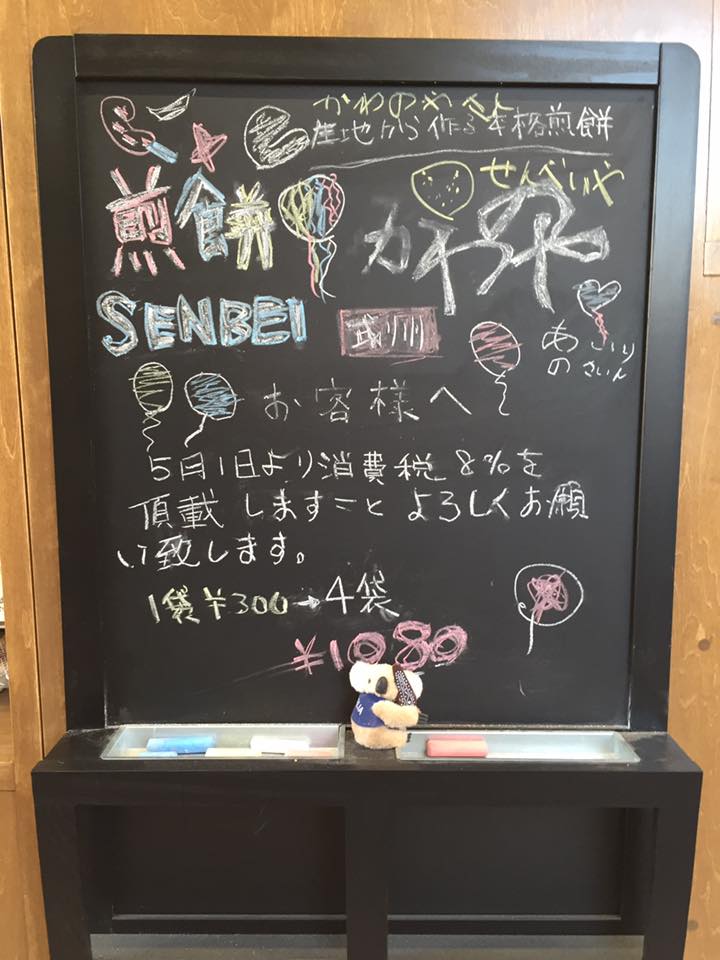 かわのやさん
生地から作る本格煎餅
せんべいや
煎餅
SENBEI
武州
あのこりのさいん
お客様へ
5月1日より消費税8%を
頂載しますことよろしくお願
い致します。
1袋¥300→4袋
¥1080